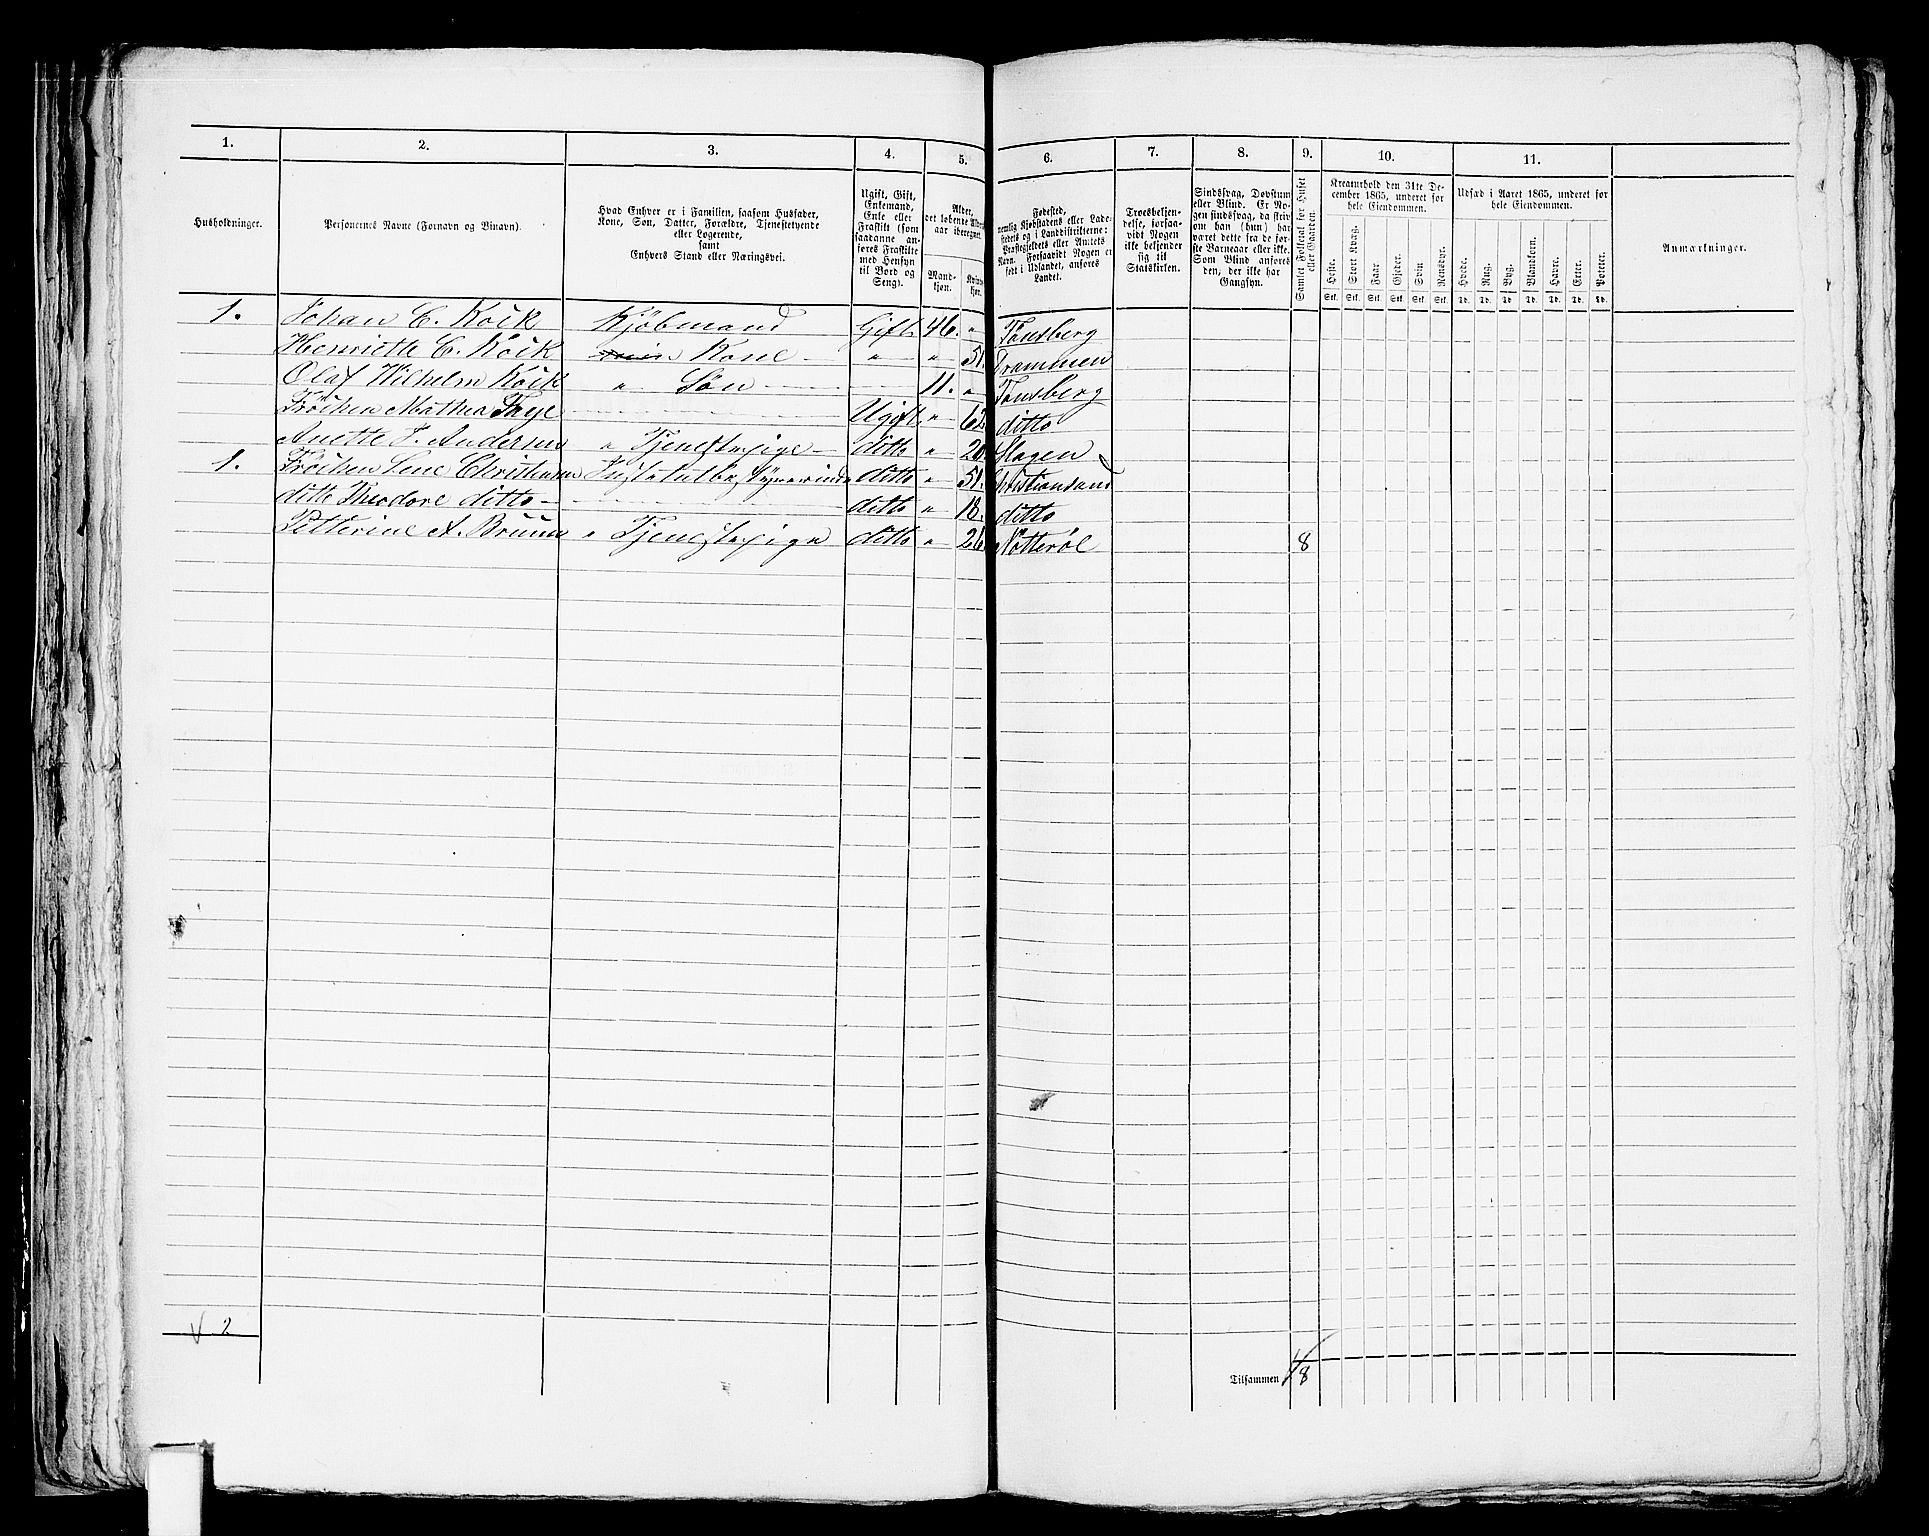 1. 2. 3. 4. 5. 6. 7. 8. 9. 10. 11.
Husholdninger.
Personernes Navne (Fornavn og Binavn).
Hvad Enhver er i Familien, saasom Husfader,
Kone, Søn, Datter, Forældre, Tjenestetyende
eller Logerende,
samt
Enhvers Stand eller Næringsvei.
Ugift, Gift,
Enkemand,
Enke eller
Fraskilt (som
saadanne an-
føres Fraskilte
med Hensyn
til Bord og
Seng).
Alder,
det løbende Alders-
aar iberegnet.
Mand-
kjøn.
Kvinde-
kjøn.
Fødested,
nemlig Kjøbstadens eller Lade-
stedets og i Landdistrikterne:
Præstegjeldets eller Amtets
Navn. Forsaavidt Nogen er
født i Udlandet, anføres
Landet.
Troesbekjen-
delse, forsaa-
vidt Nogen
ikke bekjender
sig til
Statskirken.
Sindssvag, Døvstum
eller Blind. Er No-
gen sindssvag, da skriv
om han (hun) har
været dette fra de før-
ste Barneaar eller ikke.
Som Blind anføres
den, der ikke har
Gangsyn.
Samlet Folketal for Huset
eller Gaarden.
Kreaturhold den 31te De-
cember 1865, underet for
hele Eiendommen.
Heste. Stort Kvæg. Faar. Gjeder. Svin. Rensdyr.
Stk. Stk. Stk. Stk. Stk. Stk.
Udsæd i Aaret 1865, underet for
hele Eiendommen.
Hvede. Rug. Byg. Blandkorn. Havre. Erter. Poteter.
Td. Td. Td. Td. Td. Td. Td.
Anmærkninger.
1. Johan C. Kock Kjöbmand Gift 46. " Tönsberg
Henriette C. Kock Kone " " 51. Drammen
Olaf Wilhelm Kock " Søn 11. " Tönsberg
Fröiken Mathea Ugift " 62 ditto
Anette J. Andersen " Tjenestepige ditto " 20 Slagen
1. Fröiken Lene Christensen ditto " 51. Christiansand
ditto Theodore ditto ditto " 18. ditto
Petterine A. Bruun " Tjenestepige ditto " 26 Nötteröe 8
2
Tilsammen 8